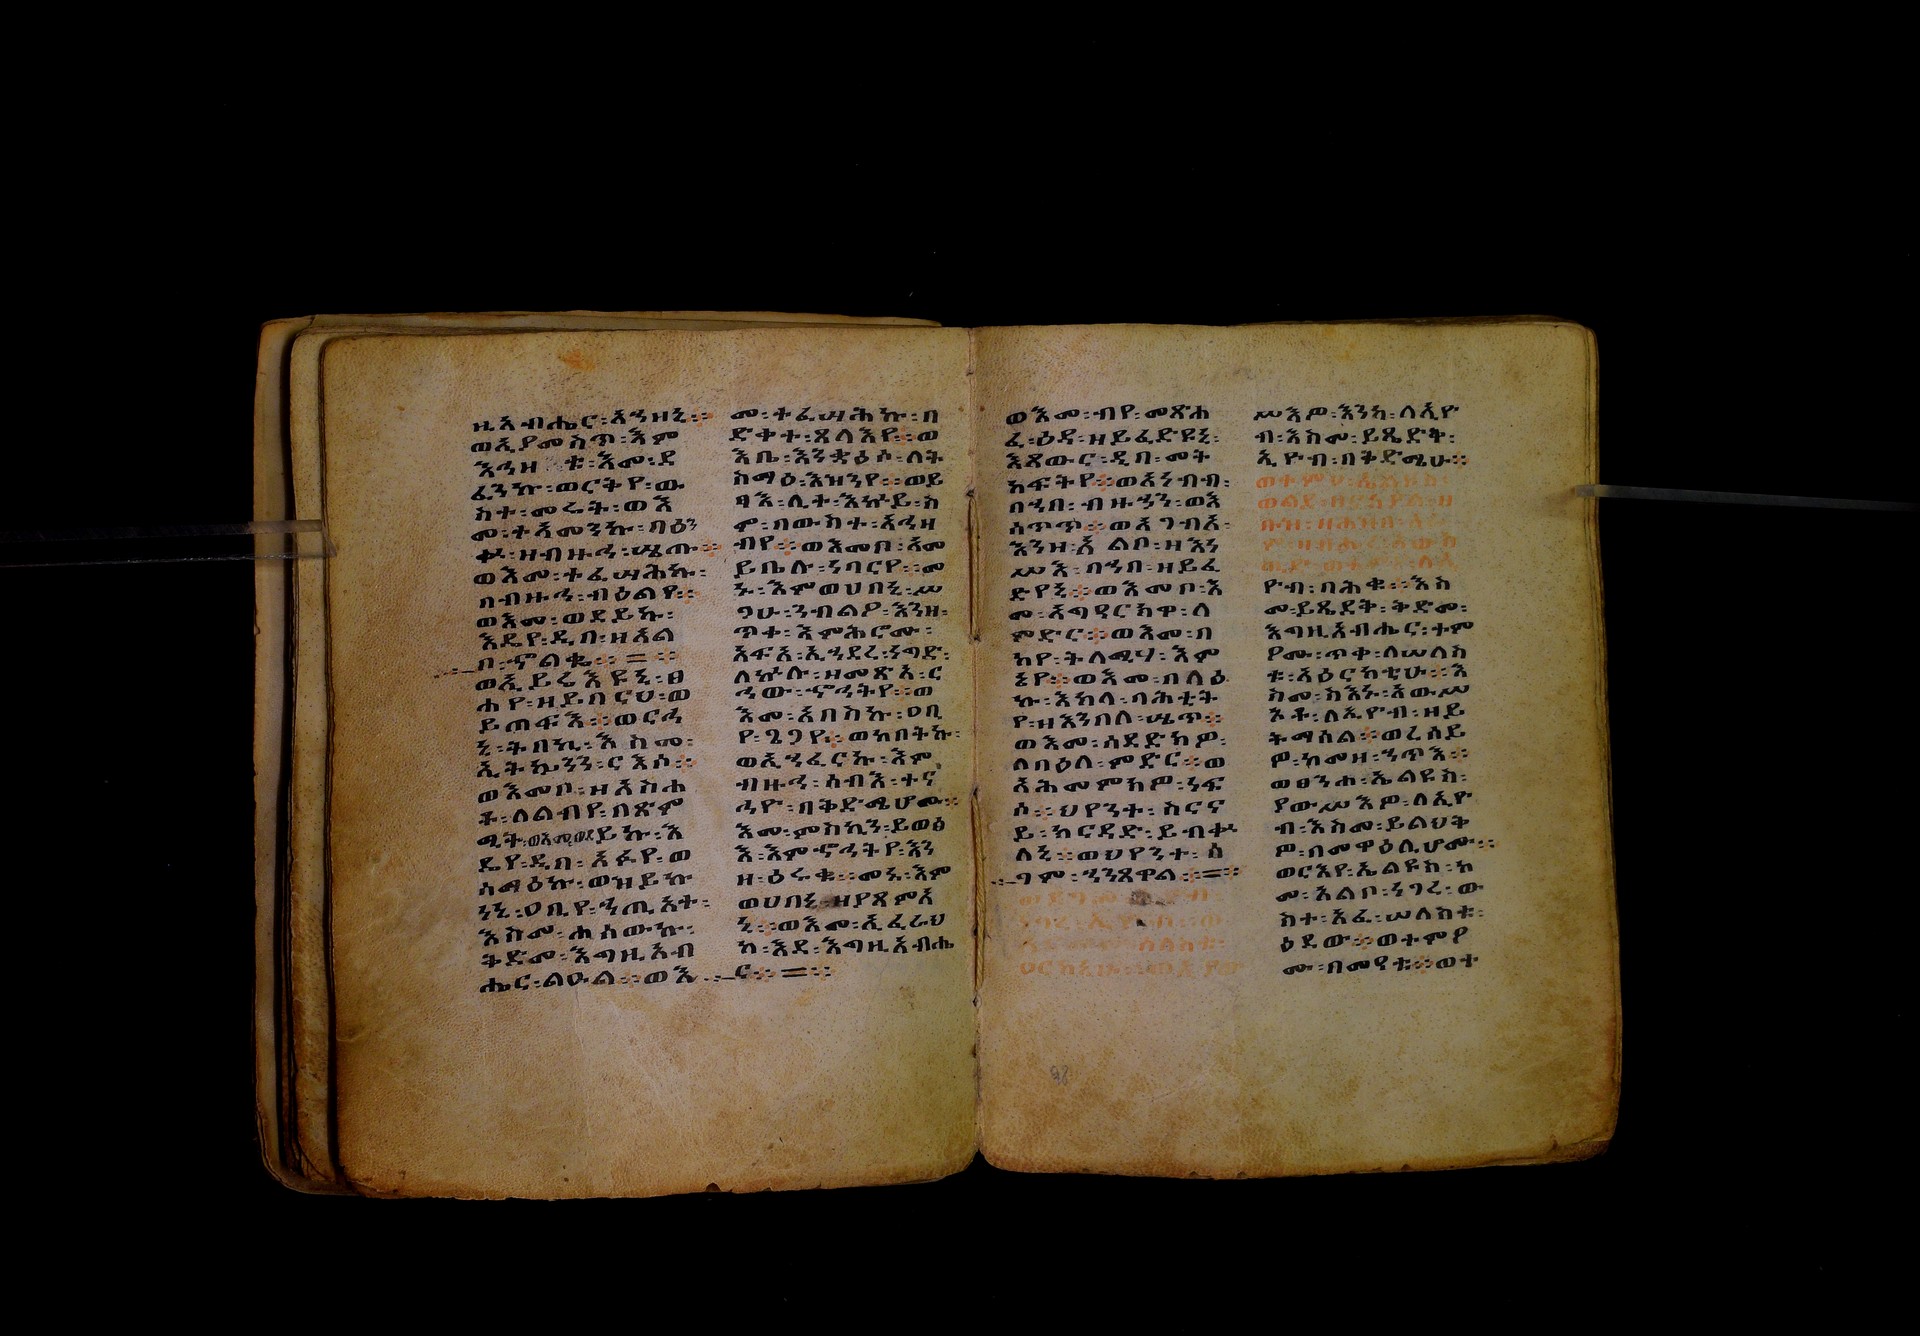 ዚአብሔር፡አኀዘኒ።
ወኢያመስጥ፡እም
እኀዘ ቱ፡እመ፡ደ
ፈንኩ፡ወርቅየ፡ው
ስተ፡መሬት፡ወእ
መ፡ተአመንኩ፡በዕን
ቍ፡ዘብዙኅ፡ሤጡ።
ወእመ፡ተፈሣሕኩ፡
በብዙኅ፡ብዕልየ።
ወእመ፡ወደይኩ፡
እዴየ፡ዲበ፡ዘአል
ቦ፡ኆልቈ።
ወኢይሬእዩኒ፡ፀ
ሐየ፡ዘይበርህ፡ወ
ይጠፍእ።ወርኅ
ኒ፡ትበኪ፡እስመ፡
ኢትኴንን፡ርእሶ።
ወእመቦ፡ዘአስሐ
ቶ፡ለልብየ፡በጽም
ሚት፡ወእመ፡ወደይኩ፡እ
ዴየ፡ዲበ፡አፉየ፡ወ
ሰማዕኩ፡ወዝይኩ
ነኒ፡ዐቢየ፡ኀጢአተ፡
እስመ፡ሐሰውኩ፡
ቅድመ፡እግዚአብ
ሔር፡ልዑል።ወእ
መ፡ተፈሣሕኩ፡በ
ድቀተ፡ጸላእየ።ወ
እቤ፡እንቋዕ፡ሶ፡ለት
ስማዕ፡እዝንየ።ወይ
ፃእ፡ሊተ፡እኩይ፡ስ
ም፡በውስተ፡አኀዘ
ብየ።ወእመቦ፡አመ
ይቤሉ፡ነባርየ፡መ
ኑ፡እምወሀበኒ፡ሠ
ጋሁ፡ንብልዖ፡እንዘ፡
ጥቀ፡እምሕሮሙ፡
አፍአ፡ኢኀደረ፡ነግድ፡
ለኵሉ፡ዘመጽአ፡ር
ኅው፡ኆኅትየ።ወ
እመ፡አበስኩ፡ዐቢ
የ፡ጌጋየ።ወከበትኩ፡
ወኢኀፈርኩ፡እም
ብዙኅ፡ሰብእ፡ተና
ኅዮ፡በቅድሜሆሙ።
እመ፡ምስኪን፡ይወፅ
እ፡እምኆኅትየ፡እን
ዘ፡ዕሩቁ።መኑ፡እም
ወሀበኒ፡ዘያጸምአ
ኒ።ወእመ፡ኢፈራህ
ኩ፡እደ፡እግዚአብሔ
ር።
ወእመ፡ብየ፡መጽሐ
ፈ፡ዕዳ፡ዘይፈድየኒ፡
እጸውር፡ዲበ፡መት
ከፍትየ።ወአነብብ፡
በኀበ፡ብዙኃን፡ወእ
ሰጥጥ።ወአገብእ፡
እንዘ፡አልቦ፡ዘእነ
ሥእ፡በኀበ፡ዘይፈ
ድየኒ።ወእመቦ፡እ
መ፡አግዓርክዋ፡ለ
ምድር።ወእመ፡በ
ከየ፡ትለሚሃ፡እም
ኔየ።ወእመ፡በላዕ
ኩ፡እክላ፡ባሕቲት
የ፡ዘእንበለ፡ሤጥ።
ወእመ፡ሰደድክዎ፡
ለበዕለ፡ምድር።ወ
አሕመምክዎ፡ነፍ
ሶ።ህየንተ፡ስርና
ይ፡ከርዳድ፡ይብቍ
ለኒ።ወህየንተ፡ሰ
ገም፡ኀንጸዋል።
ሠእዎ፡እንከ፡ለኢዮ
ብ፡እስመ፡ይጼድቅ፡
ኢዮብ፡በቅድሜሁ።
ዮብ፡በሕቁ።እስ
መ፡ይጼደቅ፡ቅድመ፡
እግዚአብሔር፡ተም
ዖሙ፡ጥቀ፡ለሠለስ
ቱ፡አዕርክቲሁ።እ
ስመ፡ስእኑ፡አውሥ
ኦቶ፡ለኢዮብ፡ዘይ
ትማሰል።ወረሰይ
ዎ፡ከመዘ፡ኀጥእ።
ወፀንሐ፡ኤልዩስ፡
ያውሥእዎ፡ለኢዮ
ብ፡እስመ፡ይልህቅ
ዎ፡በመዋዕሊሆሙ።
ወርእየ፡ኤልዩስ፡ከ
መ፡አልቦ፡ነገረ፡ው
ስተ፡አፈ፡ሠለስቱ፡
ዕደው።ወተምዖ
ሙ፡በመዓቱ።ወተ